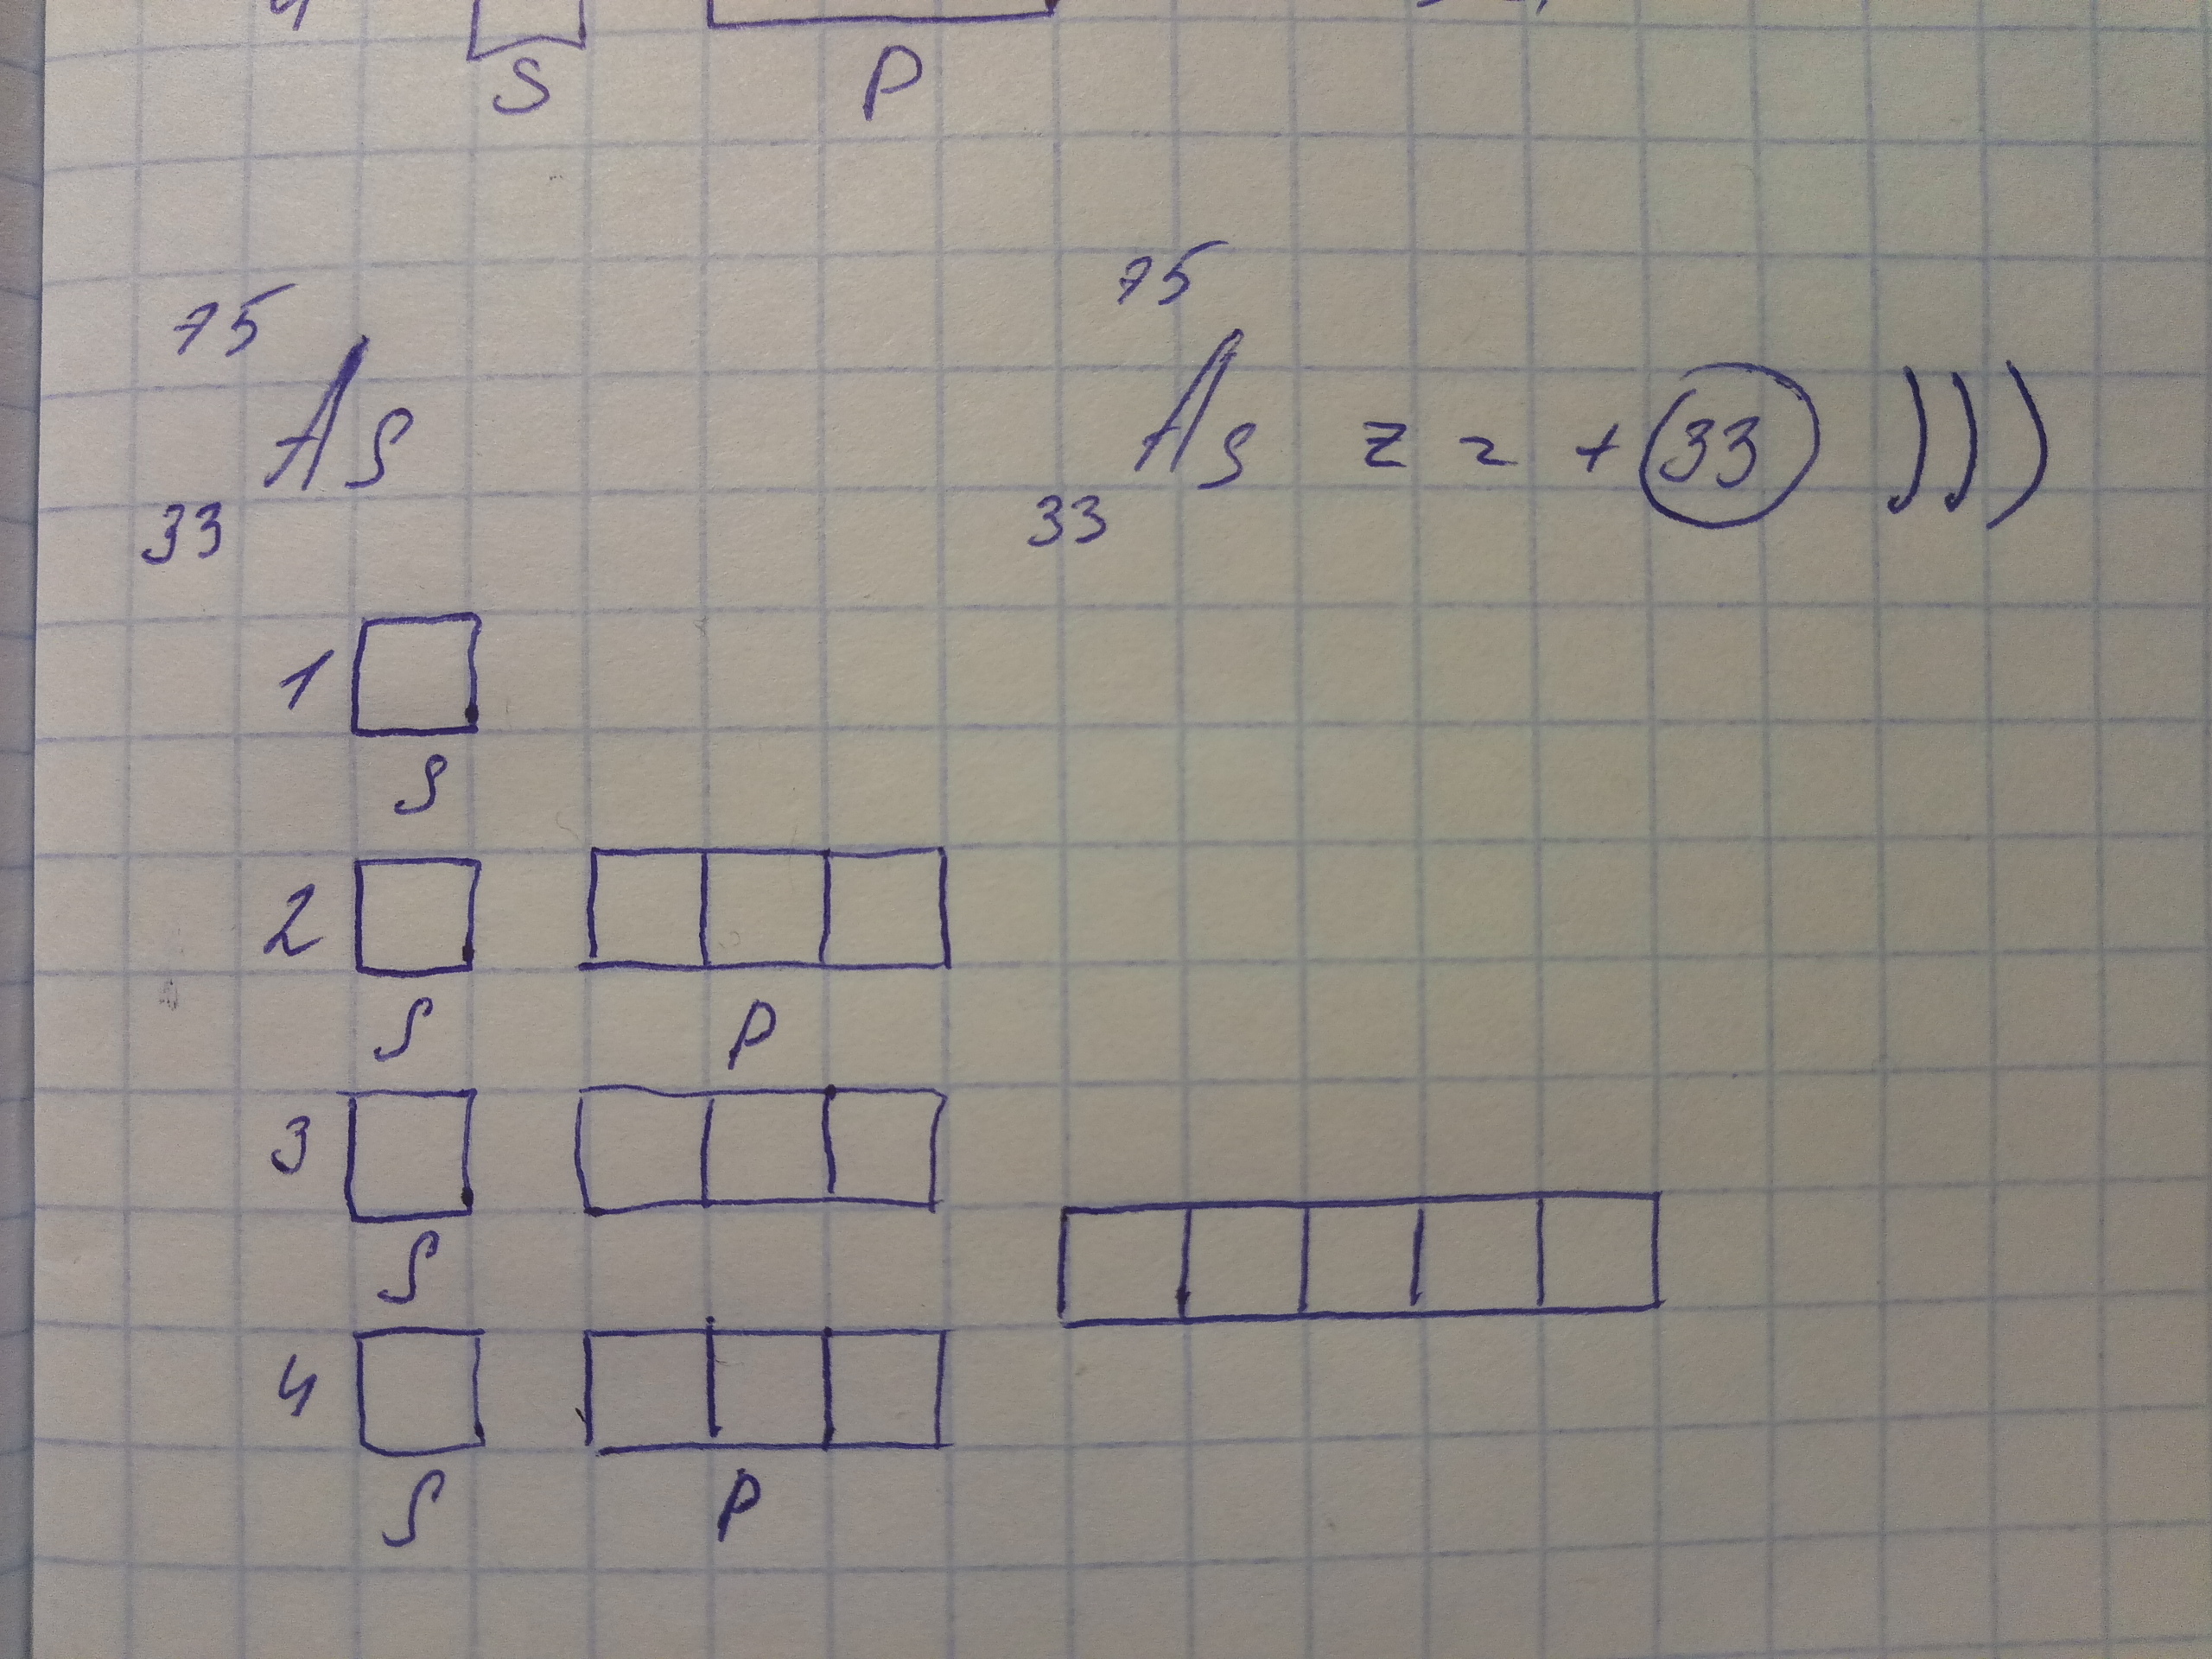 S P
75 75
As As z = + 33 )))
33 33
1
S
2
S P
3
S
4
S P